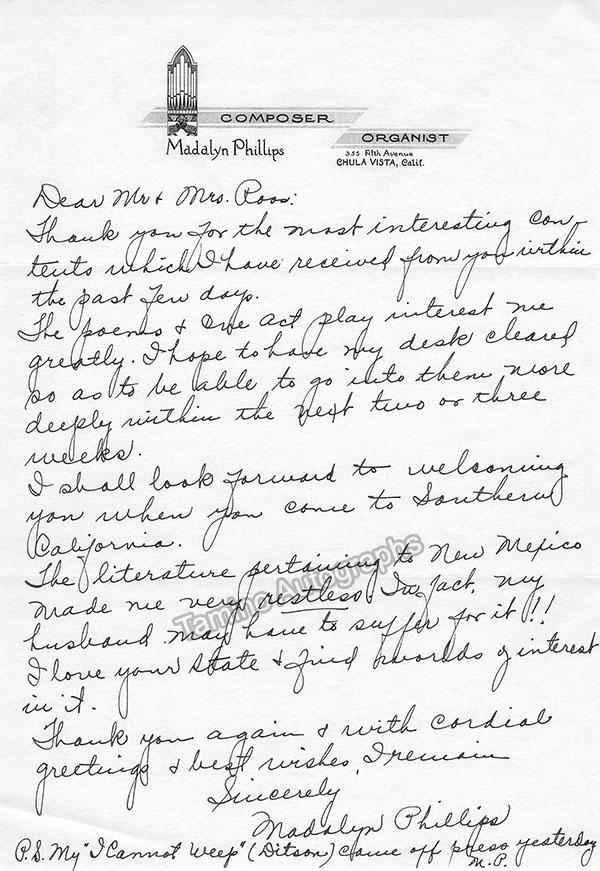 COMPOSER
ORGANIST
Madalyn Phillips
355 Fifth Avenue
CHULA VISTA, Calif.
Dear Mr & Mrs. Roos:
Thank you for the most interesting con-
tents which I have received from you within
the past few days.
The poems & One act play interest me
greatly. I hope to have my desk cleared
so as to be able to go into them more
deeply within the next two or three
weeks.
I shall look forward to welcoming
you when you come to Southern
California.
The literature pertaining to New Mexico
made me very restless. In fact, my
husband may have to suffer for it!!
I love your State & find of interest
in it.
Thank you again & with cordial
greetings & best wishes, I remain
Sincerely,
Madalyn Phillips
P.S. My "I Cannot Weep" (Ditson) came off press yesterday
M.P.
Tamino Autographs